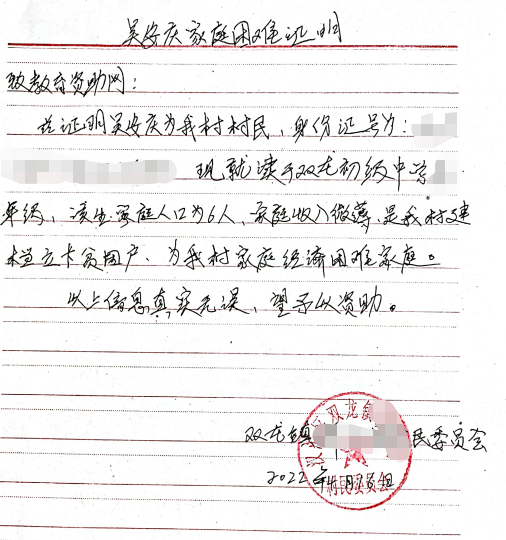 吴俊庆家庭困难证明
致教育资助网：
兹证明吴俊庆为我村村民，身份证号为：
现就读于双龙初级中学
年级，该生家庭人口为6人，家庭收入微薄，是我村建
档立卡贫困户、为我村家庭经济困难家庭。
以上信息真实无误，望予以资助。
双龙镇 民委员会
2022年 月 日
双龙镇
村民委员会